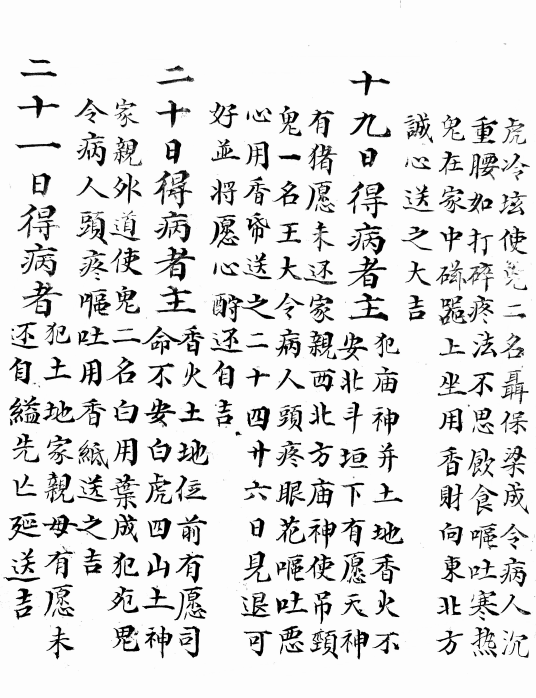 虎冷坛使兇二名聶保梁成令病人沉
重腰如打碎疼法不思飲食嘔吐寒热
鬼在家中磁噐上坐用香財向東北方
誠心送之大吉
十九日得病者主犯庙神并土地香火不
安北斗垣下有愿天神
有猪愿未还家親西北方庙神使吊頸
鬼一名王大令病人頭疼眼花嘔吐恶
心用香帋送之二十四廿六日見退可
好並将愿心酧还自吉
二十日得病者主香火土地位前有愿司
命不安白虎四山土神
家親外道使鬼二名白用葉成犯兇鬼
令病人頭疼嘔吐用香紙送之吉
二十一日得病者犯土地家親母有愿未
还自縊先亡延送吉